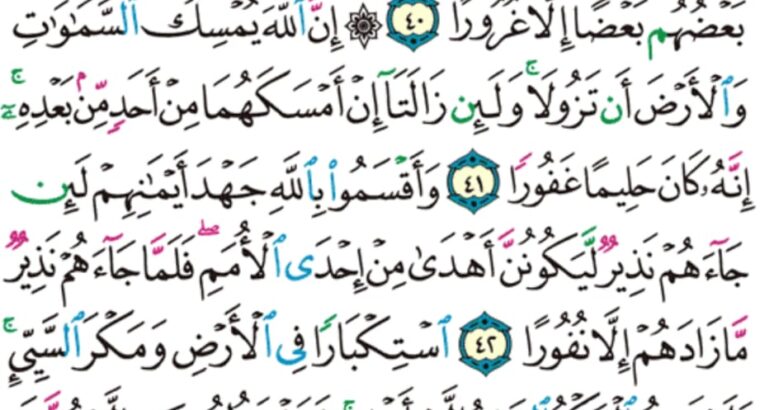 بَعْضُهُم بَعْضًا إِلَّا غُرُورًا ٤٠ ۞ إِنَّ ٱللَّهَ يُمْسِكُ ٱلسَّمَٰوَٰتِ
وَٱلْأَرْضَ أَن تَزُولَا ۚ وَلَئِن زَالَتَآ إِنْ أَمْسَكَهُمَا مِنْ أَحَدٍ مِّنۢ بَعْدِهِۦٓ ۚ
إِنَّهُۥ كَانَ حَلِيمًا غَفُورًا ٤١ وَأَقْسَمُوا۟ بِٱللَّهِ جَهْدَ أَيْمَٰنِهِمْ لَئِن
جَآءَهُمْ نَذِيرٌ لَّيَكُونُنَّ أَهْدَىٰ مِنْ إِحْدَى ٱلْأُمَمِ ۖ فَلَمَّا جَآءَهُمْ نَذِيرٌ
مَّا زَادَهُمْ إِلَّا نُفُورًا ٤٢ ٱسْتِكْبَارًا فِى ٱلْأَرْضِ وَمَكْرَ ٱلسَّيِّئِ ۚ